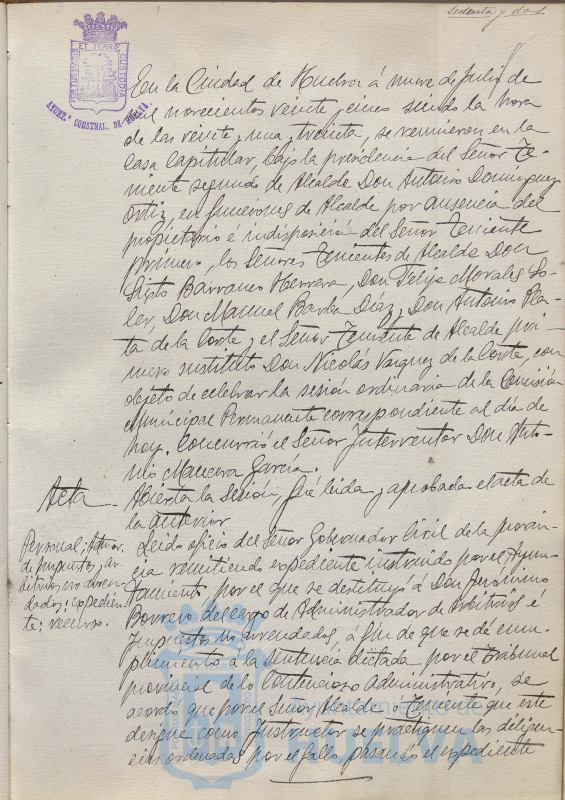 sesenta y dos
PORTUS MARIS ET TERRÆ CUSTODIA
AYUNTº CONSTNAL. DE HUELVA
En la Ciudad de Huelva á nueve de Julio de
mil novecientos veinte y cinco siendo la hora
de las veinte y una y treinta, se reunieron en la
Casa Capitular, bajo la presidencia del Señor Te-
niente segundo de Alcalde Don Antonio Dominguez
Ortiz, en funciones de Alcalde por ausencia del
propietario é indisposición del Señor Teniente
primero, los Señores Tenientes de Alcalde Don
Sixto Barranco Herrera, Don Felipe Morales So-
ler, Don Manuel Barba Díaz, Don Antonio Pla-
ta de la Corte y el Señor Teniente de Alcalde pri-
mero sustituto Don Nicolás Vazquez de la Corte, con
objeto de celebrar la sesión ordinaria de la Comisión
Municipal Permanente correspondiente al día de
hoy. Concurrió el Señor Interventor Don Anto-
nio García.
Acta Abierta la Sesión, fué leida y aprobada el acta de
la anterior
Personal; Admor.
de impuestos y ar-
bitrios no arren-
dados; Expedien-
te; recurso.
Leido oficio del Señor Gobernador Civil de la provin-
cia remitiendo expediente instruido por el Ayun-
tamiento, por el que se destituyó á Don Jerónimo
Borrero del cargo de Administrador de Arbitrios é
Impuestos no arrendados, a fin de que se dé cum-
plimiento á la sentencia dictada por el Tribunal
provincial de lo Contencioso Administrativo, se
acordó que por el Señor Alcalde o Teniente que este
designe como Instructor se practiquen las diligen-
cias ordenadas por el fallo, pasando el expediente
Ayuntamiento de
HUELVA